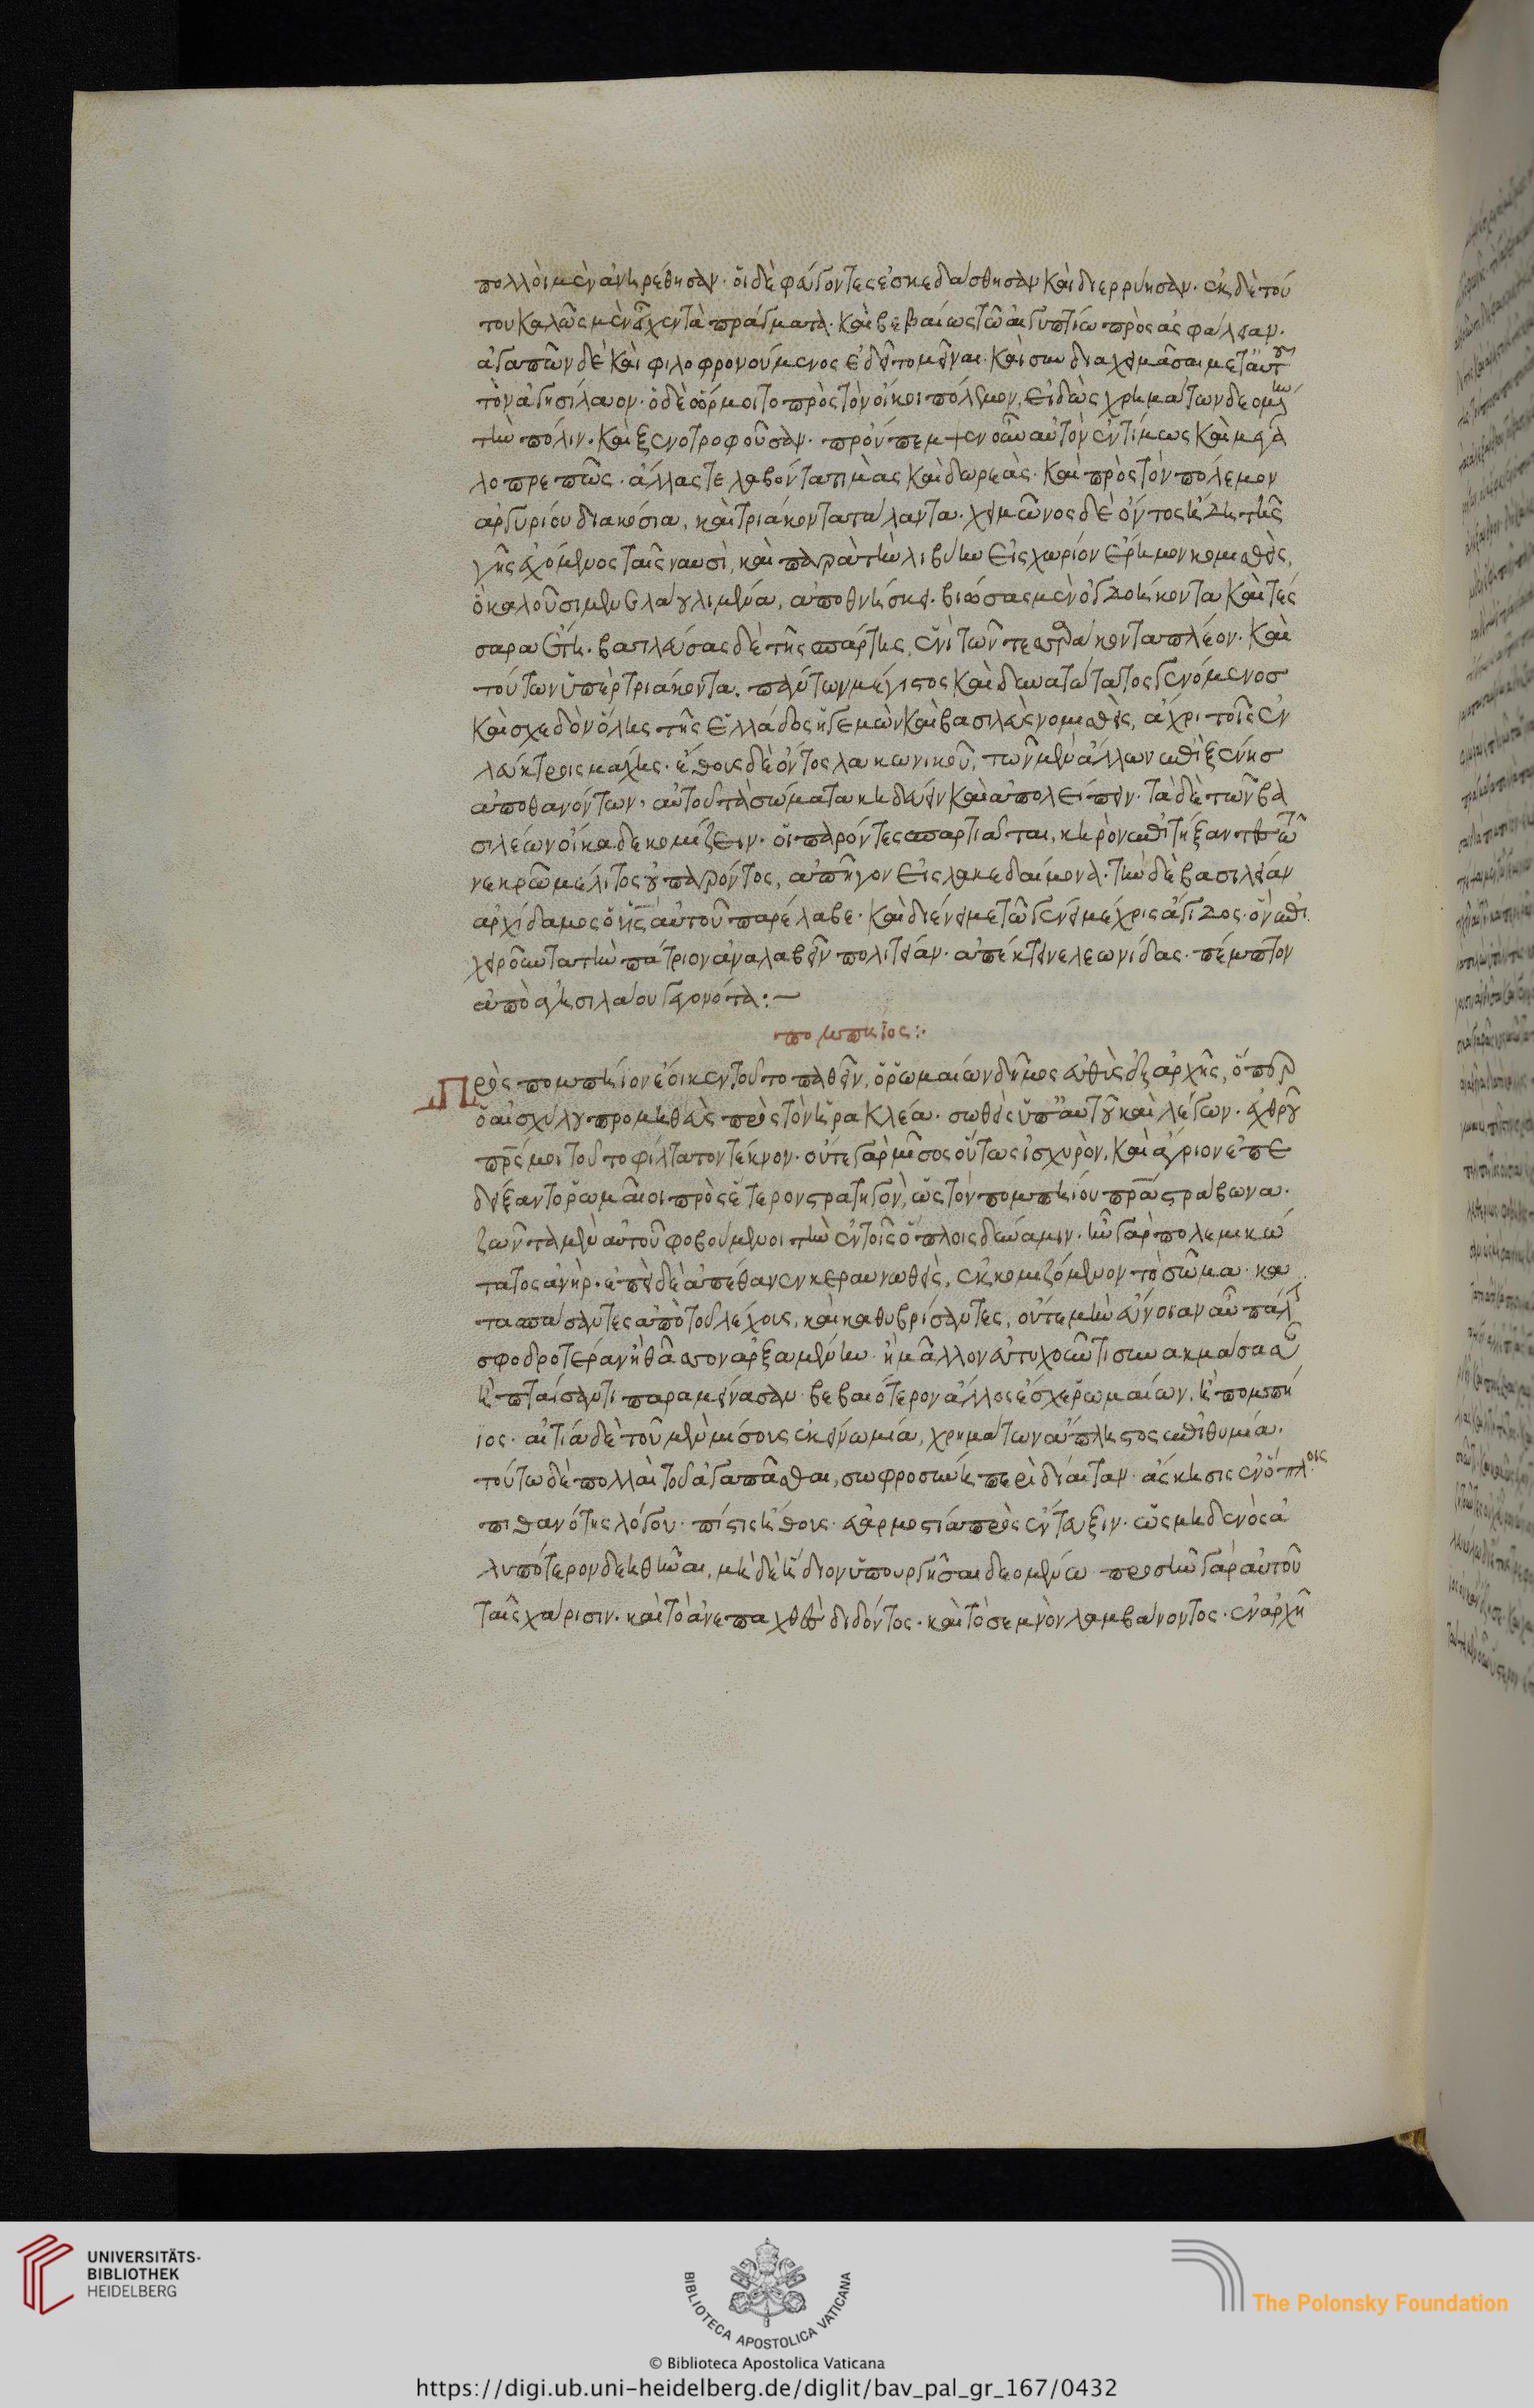 πολλοὶ μὲν ἀνῃρέθησαν· οἱ δὲ φεύγοντες ἐσκεδάσθησαν καὶ διερρύησαν· ἐκ δὲ τού
του καλῶς μὲν εἶχεν τὰ πράγματα· καὶ βεβαίως τῶ αἰγυπτίω πρὸς ἀσφάλειαν·
ἀγαπῶν δὲ καὶ φιλοφρονούμενος ἐδεῖτο μεῖναι· καὶ συνδιαχειμάσαι μετ αὐτοῦ
τὸν ἀγησίλαον· ὁ δὲ ὥρμητο πρὸς τὸν οἴκοι πόλεμον, εἰδὼς χρημάτων δεομένην
τὴν πόλιν· καὶ ξενοτροφοῦσαν· προὔπεμψεν οὖν αὐτὸν ἐντίμως καὶ μεγα
λοπρεπῶς· ἄλλας τε λαβόντα τιμὰς καὶ δωρεὰς· καὶ πρὸς τὸν πόλεμον
ἀργυρίου διακόσια, καὶ τριάκοντα τάλαντα· χειμῶνος δὲ ὄντος ἤδη τῆς
γῆς ἐχόμενος ταῖς ναυσὶ, καὶ παρὰ τὴν λιβύην εἰς χωρίον ἔρημον κομισθεὶς,
ὃ καλοῦσι μενελάου λιμένα, ἀποθνήσκει· βιώσας μὲν ὀγδοήκοντα καὶ τέσ
σαρα ἔτη· βασιλεύσας δὲ τῆς σπάρτης, ἑνὶ τῶν τεσσαράκοντα πλέον· καὶ
τούτων ὑπὲρ τριάκοντα· πάντων μέγιστος καὶ δυνατώτατος γενόμενος
καὶ σχεδὸν ὅλης τῆς ἑλλάδος ἡγεμὼν καὶ βασιλεὺς νομισθεὶς, ἄχρι τῆς ἐν
λεύκτροις μάχης· ἔθους δὲ ὄντος λακωνικοῦ, τῶν μὲν ἄλλων ἐπὶ ξένης
ἀποθανόντων, αὐτοῦ τὰ σώματα κηδεύειν καὶ ἀπολείπειν· τὰ δὲ τῶν βα
σιλέων οἴκαδε κομίζειν· οἱ παρόντες σπαρτιᾶται, κηρὸν ἐπιτήξαντες τῶ
νεκρῶ μέλιτος οὐ παρόντος, ἀπῆγον εἰς λακεδαίμονα· τὴν δὲ βασιλείαν
ἀρχίδαμος ὁ υἱὸς αὐτοῦ παρέλαβε· καὶ διέμεινε τῶ γένει μέχρις ἄγιδος· ὃν ἐπι
χειροῦντα τὴν πάτριον ἀναλαβεῖν πολιτείαν· ἀπέκτεινε λεωνίδας· πέμπτον
ἀπὸ ἀγησιλάου γεγονότα:—
πομπήιος:·
Πρὸς πομπήιον ἔοικεν τοῦτο παθεῖν, ὁ ῥωμαίων δῆμος εὐθὺς ἐξ ἀρχῆς, ὅπερ
ὁ αἰσχύλου προμηθεὺς πρὸς τὸν ἡρακλέα· σωθεὶς ὑπ αὐτοῦ καὶ λέγων· ἐχθροῦ
πρς μοι τοῦτο φίλτατον τέκνον· οὔτε γὰρ μῖσος οὕτως ἰσχυρὸν, καὶ ἄγριον ἐπε
δείξαντο ῥωμαῖοι πρὸς ἕτερον στρατηγὸν, ὡς τὸν πομπηίου πρα στράβωνα·
ζῶντα μὲν αὐτοῦ φοβούμενοι τὴν ἐν τοῖς ὅπλοις δύναμιν· ἦν γὰρ πολεμικώ
τατος ἀνὴρ· ἐπεὶ δὲ ἀπέθανεν κεραυνωθεὶς, ἐκκομιζόμενον τὸ σῶμα κα
τασπάσαντες ἀπὸ τοῦ λέχους, καὶ καθυβρίσαντες, οὔτε μὴν εὔνοιαν αὖ πάλιν
σφοδροτέραν ἢ θᾶσσον ἀρξαμένην ἢ μᾶλλον εὐτυχοῦντι συνακμάσασαν
ἢ πταίσαντι παραμείνασαν βεβαιότερον ἄλλος ἔσχε ῥωμαίων, ἢ πομπή
ιος· αἰτία δὲ τοῦ μὲν μίσους ἐκείνω μία, χρημάτων ἄπληστος ἐπιθυμία·
τούτω δὲ πολλαὶ τοῦ ἀγαπᾶσθαι, σωφροσύνη περὶ δίαιταν· ἄσκησις ἐν ὅπλοις
πιθανότης λόγου· πίστις ἤθους· εὐαρμοστία πρὸς ἔντευξιν· ὡς μηδενὸς ἀ
λυπότερον δεηθῆναι, μηδὲ ἥδιον ὑπουργῆσαι δεομένω προσῆν γὰρ αὐτοῦ
ταῖς χάρισιν· καὶ τὸ ἀνεπαχθὲς διδόντος· καὶ τὸ σεμνὸν λαμβάνοντος· ἐν ἀρχῆ
UNIVERSITÄTS-
BIBLIOTHEK
HEIDELBERG
BIBLIOTECA APOSTOLICA VATICANA
The Polonsky Foundation
© Biblioteca Apostolica Vaticana
https://digi.ub.uni-heidelberg.de/diglit/bav_pal_gr_167/0432